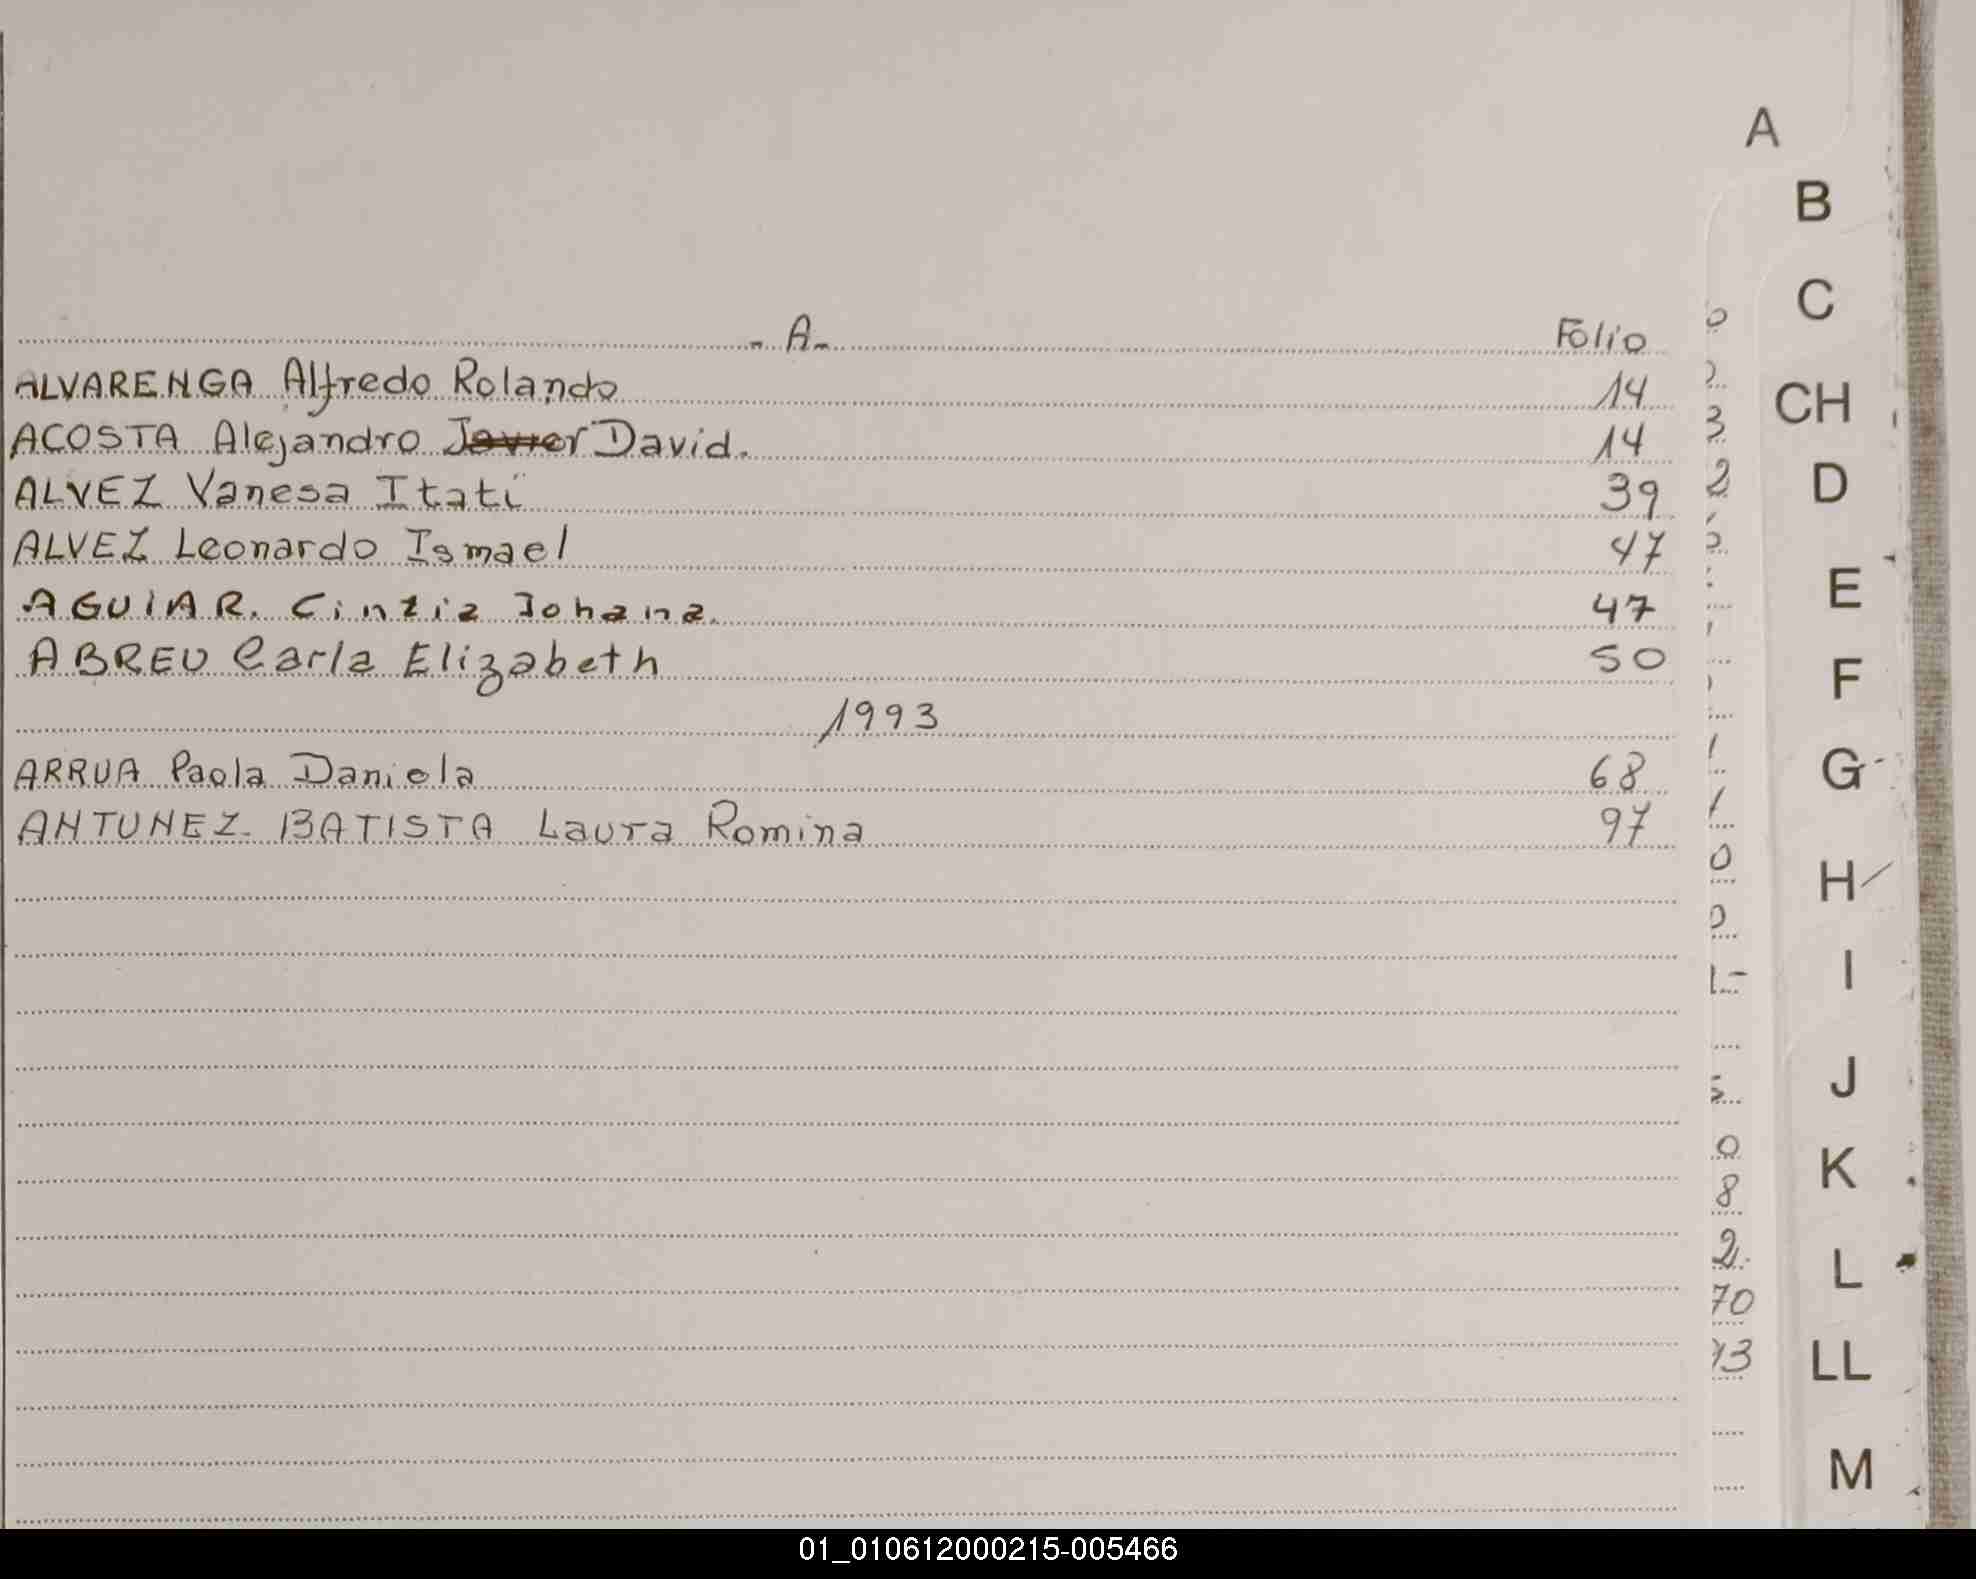 - A - Folio
ALVARENGA Alfredo Rolando 14
ACOSTA Alejandro Javier David. 14
ALVEZ Vanesa Itatí 39
ALVEZ Leonardo Ismael 47
AGUIAR. Cintia Johana. 47
ABREU Carla Elizabeth 50
1993
ARRUA Paola Daniela 68
ANTUNEZ BATISTA Laura Romina 97
A
B
C
CH
D
E
F
G
H
I
J
K
L
LL
M
8
2
70
01_010612000215-005466